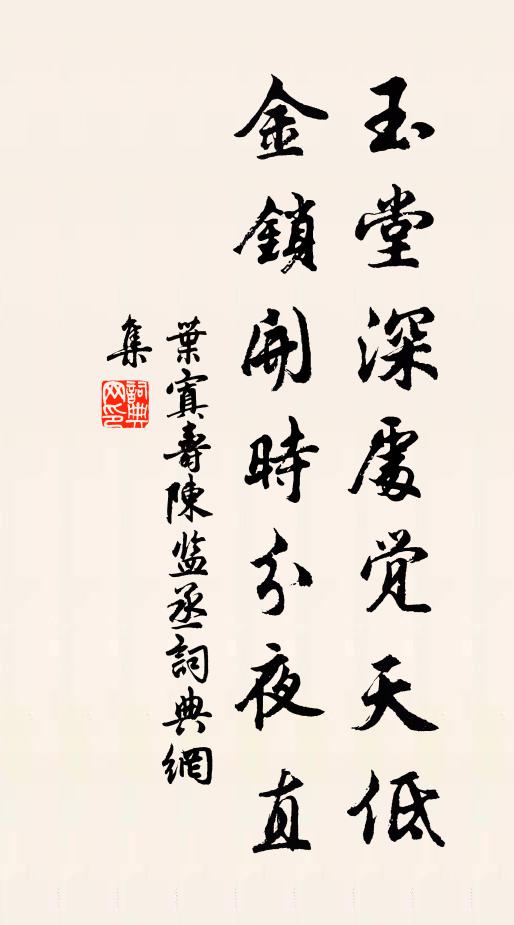 玉堂深處觉天低
金鎖開時分夜直
葉寘壽陳监丞詞典網
集
詞典网印